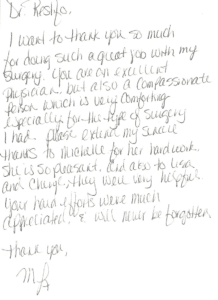 Dr. Reshko,
I want to thank you so much
for doing such a great job with my
surgery. You are an excellent
physician, but also a compassionate
person which is very comforting
especially for the type of surgery
I had. Please extend my sincere
thanks to Michelle for her hard work.
She is so pleasant. And also to Lisa
and they were very helpful.
Your hard efforts were much
appreciated & will never be forgotten.
Thank you,